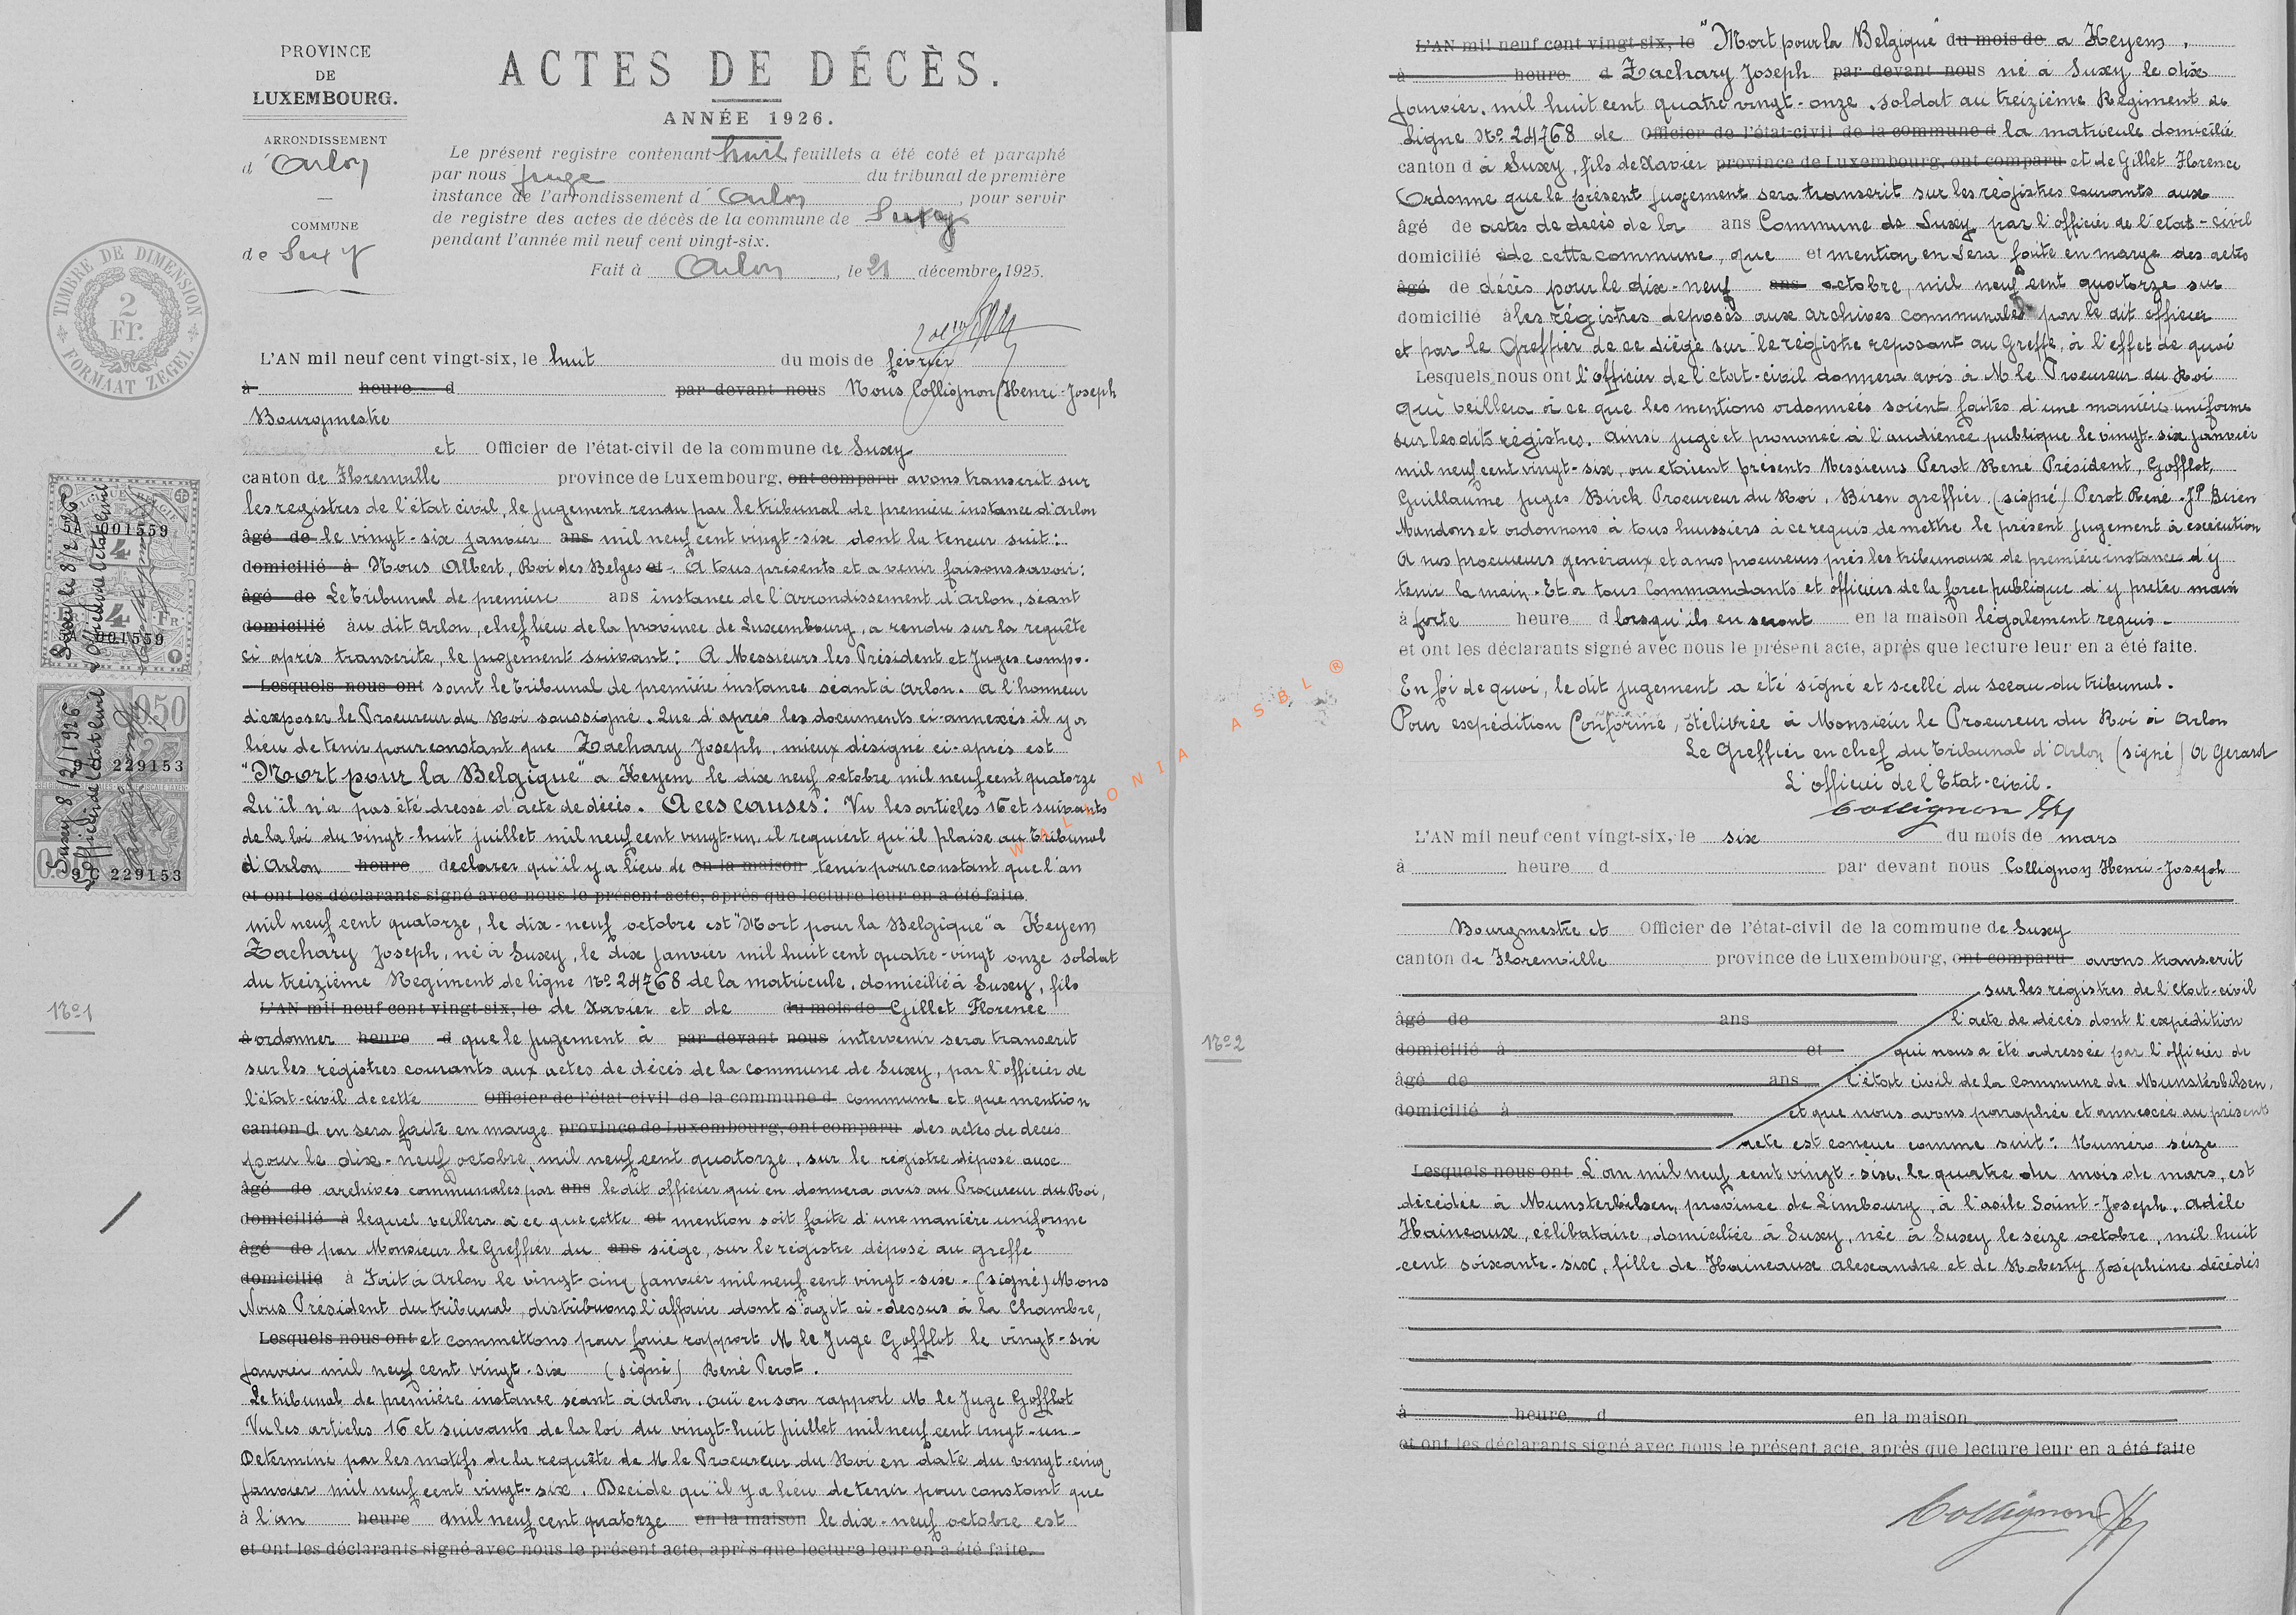 PROVINCE
DE
LUXEMBOURG.
ARRONDISSEMENT
d'Arlon
COMMUNE
de Suxy
TIMBRE DE DIMENSION
2
Fr.
FORMAAT ZEGEL
ACTES DE DÉCÈS.
ANNÉE 1926.
Le présent registre contenant huit feuillets a été coté et paraphé
par nous Juge du tribunal de première
instance de l'arrondissement d'Arlon, pour servir
de registre des actes de décès de la commune de Suxy
pendant l'année mil neuf cent vingt-six.
Fait à Arlon, le 21 décembre 1925.
L'AN mil neuf cent vingt-six, le huit du mois de février
à heure d par devant nous Nous Collignon Henri-Joseph
Bourgmestre
et Officier de l'état-civil de la commune de Suxy
canton de Florenville province de Luxembourg, ont comparu avons transcrit sur
les registres de l'état civil, le jugement rendu par le tribunal de première instance d'Arlon
âgé de le vingt-six janvier ans mil neuf cent vingt-six dont la teneur suit:
domicilié à Nous Albert, Roi des Belges et. A tous présents et a venir faisons savoir:
âgé de Le Tribunal de première ans instance de l'Arrondissement d'Arlon, séant
domicilié au dit Arlon, chef lieu de la province de Luxembourg, a rendu sur la requête
ci après transcrite, le jugement suivant: A Messieurs les Président et Juges compo-
Lesquels nous ont sant le Tribunal de première instance séant à Arlon. A l'honneur
d'exposer le Procureur du Roi soussigné. Que d'après les documents ci-annexés il y a
lieu de tenir pour constant que Zachary Joseph, mieux désigné ci-après est
"Mort pour la Belgique" a Keyem le dix neuf octobre mil neuf cent quatorze
Qu'il n'a pas été dressé d'acte de décès. A ces causes: Vu les articles 16 et suivants
de la loi du vingt-huit juillet mil neuf cent vingt-un, il requiert qu'il plaise au Tribunal
d'Arlon heure declarer qu'il y a lieu de en la maison tenir pour constant que l'an
et ont les déclarants signé avec nous le présent acte, après que lecture leur en a été faite.
mil neuf cent quatorze, le dix-neuf octobre est "Mort pour la Belgique" a Keyem
Zachary Joseph, né à Suxy, le dix janvier mil huit cent quatre-vingt onze soldat
du treizième Régiment de ligne No 24768 de la matricule, domicilié à Suxy, fils
No 1
L'AN mil neuf cent vingt-six, le de Xavier et de du mois de Gillet Florence
à ordonner heure d que le jugement à par devant nous intervenir sera transcrit
sur les régistres courants aux actes de décès de la commune de Suxy, par l'officier de
l'état-civil de cette Officier de l'état-civil de la commune d commune et que mention
canton d en sera faite en marge province de Luxembourg, ont comparu des actes de decès
pour le dix-neuf octobre, mil neuf cent quatorze, sur le régistre déposé aux
âgé de archives communales par ans le dit officier qui en donnera avis au Procureur du Roi,
domicilié à lequel veillera à ce que cette et mention soit faite d'une manière uniforme
âgé de par Monsieur le Greffier du ans siège, sur le régistre déposé au greffe
domicilié à Fait à Arlon le vingt-cinq janvier mil neuf cent vingt-six. (signé) Mons
Nous Président du tribunal, distribuons l'affaire dont s'agit ci-dessus à la Chambre,
Lesquels nous ont et commettons pour faire rapport M le Juge Gofflot le vingt-six
janvier mil neuf cent vingt-six (signé) René Perot.
Le tribunal de première instance séant à Arlon. Ouï en son rapport M le Juge Gofflot
Vu les articles 16 et suivants de la loi du vingt-huit juillet mil neuf cent vingt-un-
Determiné par les motifs de la requête de M le Procureur du Roi en date du vingt-cinq
janvier mil neuf cent vingt-six. Decide qu'il y a lieu de tenir pour constant que
à l'an heure d mil neuf cent quatorze en la maison le dix-neuf octobre est
et ont les déclarants signé avec nous le présent acte, après que lecture leur en a été faite.
A 001559
4
4 Fr
A 001559
Suxy le 8/2/1926
L'officier de l'état civil
0.50
9 C 229153
Suxy 8/2/1926
L'officier de l'état civil
9 C 229153
WALLONIA ASBL ®
L'AN mil neuf cent vingt-six, le "Mort pour la Belgique" du mois de a Keyem,
à heure d Zachary Joseph par devant nous né à Suxy le dix
janvier, mil huit cent quatre vingt-onze, soldat au treizième Régiment de
Ligne No 24768 de Officier de l'état-civil de la commune d la matricule domicilié
canton d à Suxy, fils de Xavier province de Luxembourg, ont comparu et de Gillet Florence
Ordonne que le présent jugement sera transcrit sur les régistres courants aux
âgé de actes de decès de la ans Commune de Suxy par l'officier de l'etat-civil
domicilié à de cette commune, que et mention en sera faite en marge des actes
âgé de décès pour le dix-neuf ans octobre, mil neuf cent quatorze sur
domicilié à les régistres deposés aux archives communales par le dit officier
et par le Greffier de ce siège sur le régistre reposant au Greffe, à l'effet de quoi
Lesquels nous ont l'officier de l'etat-civil donnera avis à M le Procureur du Roi
qui veillera à ce que les mentions ordonnées soient faites d'une manière uniforme
sur les dits régistres. Ainsi jugé et prononcé à l'audience publique le vingt-six janvier
mil neuf cent vingt-six, ou etaient présents Messieurs Perot René Président, Gofflot,
Guillaume juges Birck Procureur du Roi, Biren greffier (signé) Perot René. JP Birien
Mandons et ordonnons à tous huissiers à ce requis de mettre le présent jugement à exécution
A nos procureurs generaux et a nos procureurs près les tribunaux de première instance d'y
tenir la main. Et a tous Commandants et officiers de la force publique d'y preter main
à forte heure d lorsqu'ils en seront en la maison légalement requis-
et ont les déclarants signé avec nous le présent acte, après que lecture leur en a été faite.
En foi de quoi, le dit jugement a été signé et scellé du sceau du tribunal.
Pour expédition Conforme, délivrée à Monsieur le Procureur du Roi à Arlon
Le Greffier en chef du Tribunal d'Arlon (signé) A Gerard
L'officier de l'Etat-civil.
Collignon HJ
L'AN mil neuf cent vingt-six, le six du mois de mars
à heure d par devant nous Collignon Henri-Joseph
Bourgmestre et Officier de l'état-civil de la commune de Suxy
canton de Florenville province de Luxembourg, ont comparu avons transcrit
sur les régistres de l'etat-civil
âgé de ans l'acte de décès dont l'expédition
No 2
domicilié à et qui nous a été adressée par l'officier de
âgé de ans l'état civil de la commune de Munsterbilsen,
domicilié à et que nous avons paraphée et annexée au présent
acte est conçue comme suit: Numéro seize
Lesquels nous ont L'an mil neuf cent vingt-six, le quatre du mois de mars, est
décédée à Munsterbilsen, province de Limbourg, à l'asile Saint-Joseph, Adèle
Haineaux, célibataire, domiciliée à Suxy, née à Suxy le seize octobre, mil huit
cent soixante-six, fille de Haineaux Alexandre et de Roberty Joséphine décédés
à heure d en la maison
et ont les déclarants signé avec nous le présent acte, après que lecture leur en a été faite
Collignon HJ